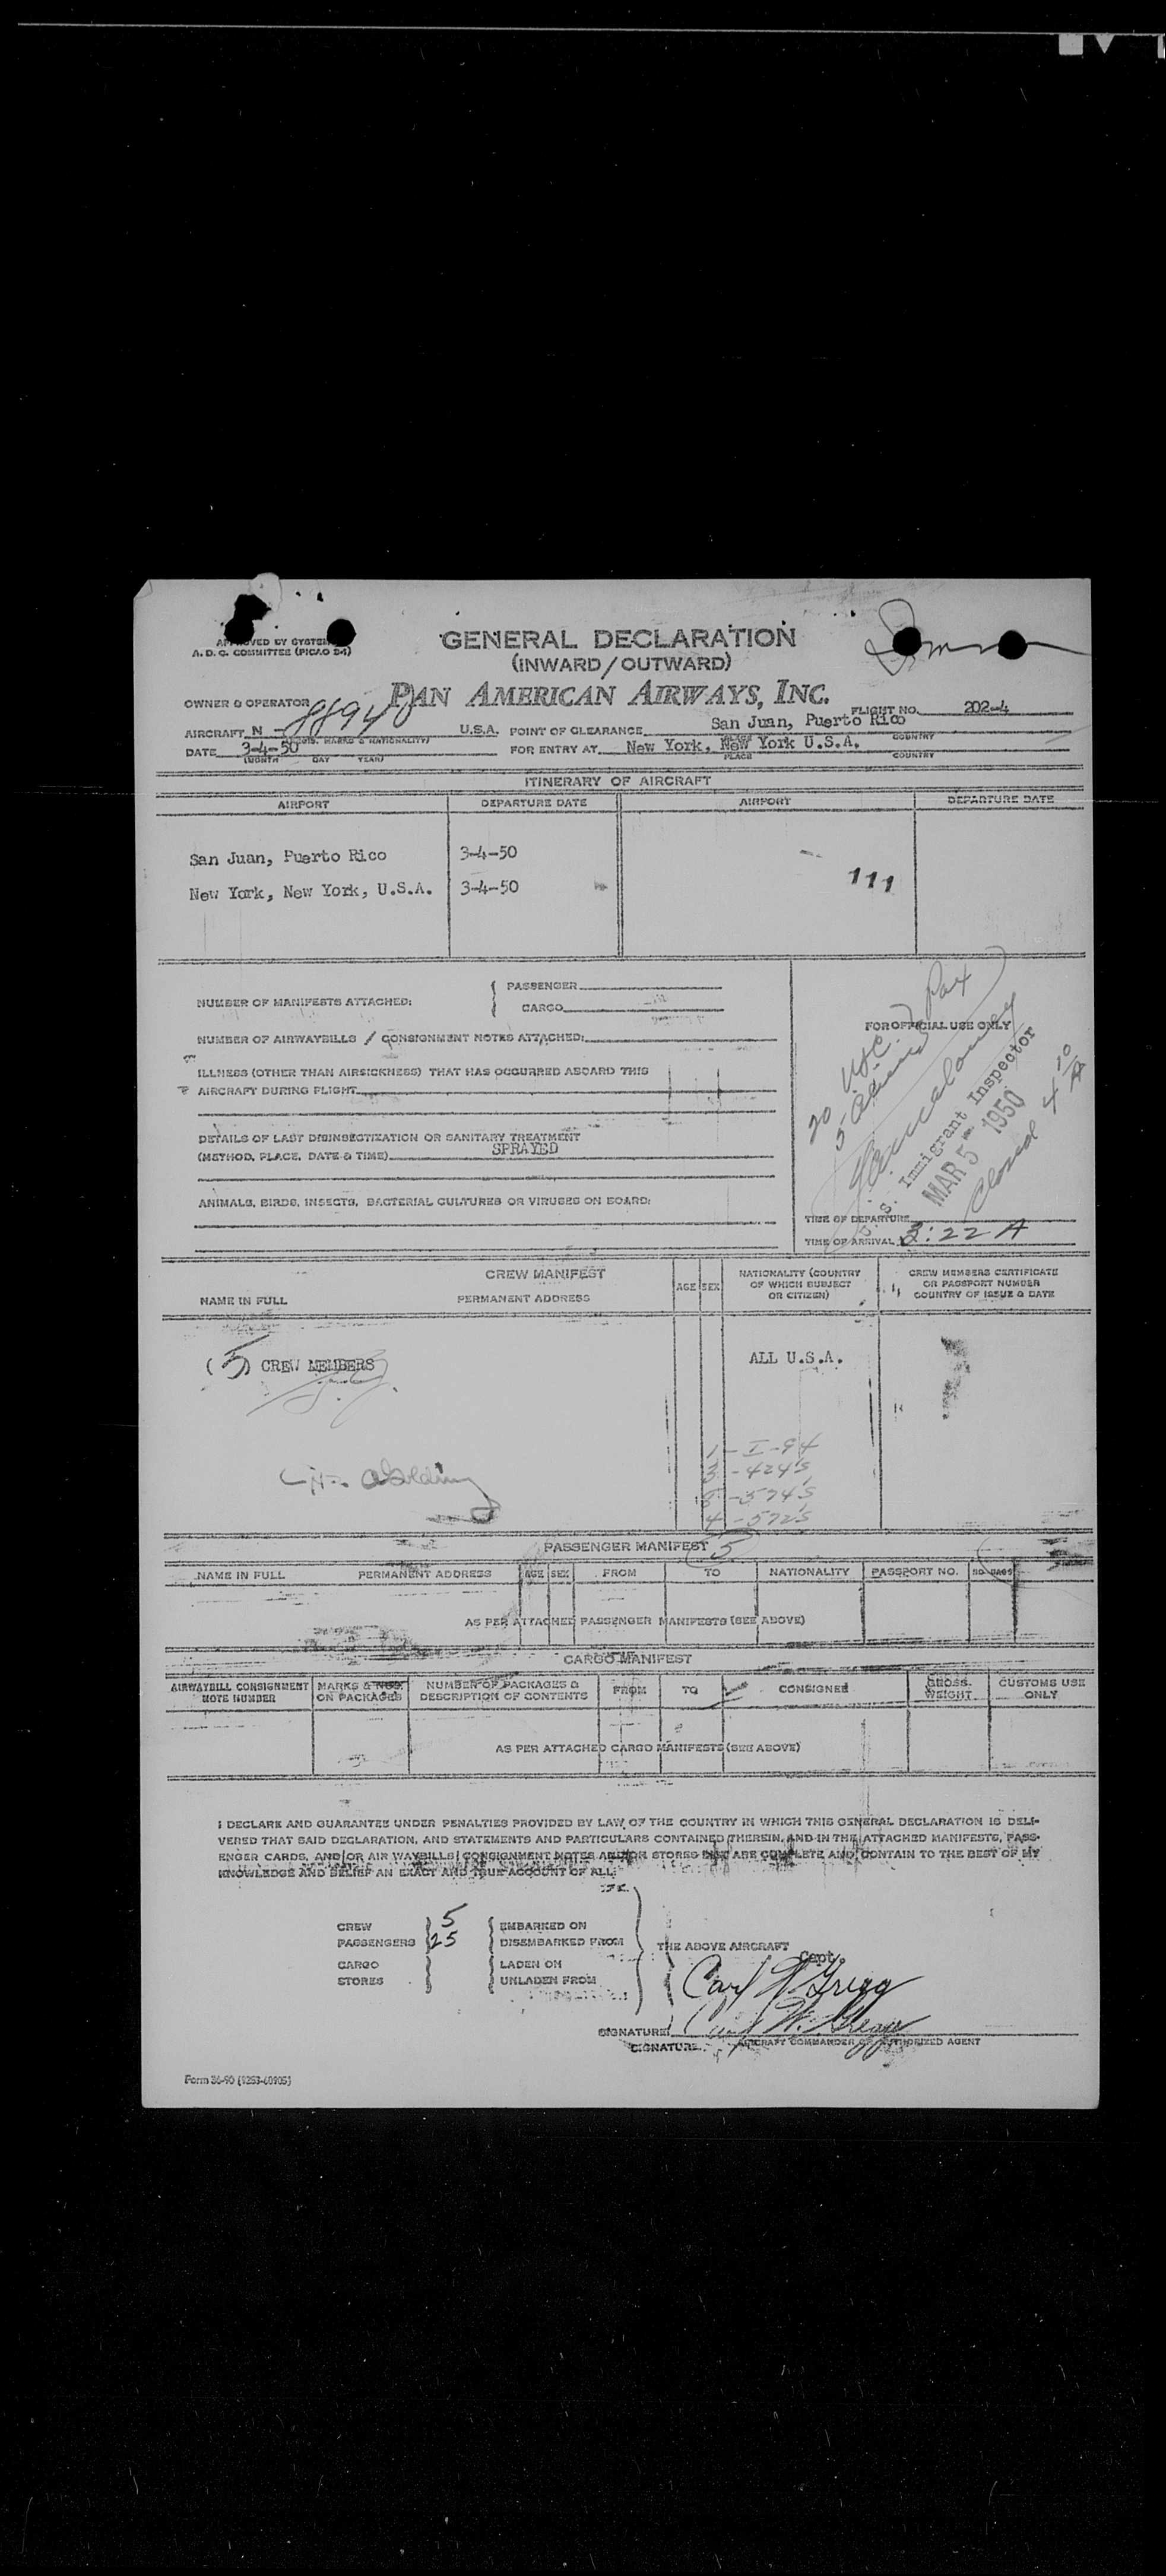 APPROVED BY SYSTEM
A. D. C. COMMITTEE (PICAO 24)
GENERAL DECLARATION
(INWARD/OUTWARD)
OWNER & OPERATOR PAN AMERICAN AIRWAYS, INC.
FLIGHT NO. 202-4
AIRCRAFT N - 88940 U.S.A. POINT OF CLEARANCE San Juan, Puerto Rico
(REGIS. MARKS & NATIONALITY) PLACE COUNTRY
DATE 3-4-50 FOR ENTRY AT New York, New York U.S.A.
(MONTH DAY YEAR) PLACE COUNTRY
ITINERARY OF AIRCRAFT
AIRPORT DEPARTURE DATE AIRPORT DEPARTURE DATE
San Juan, Puerto Rico 3-4-50
111
New York, New York, U.S.A. 3-4-50
NUMBER OF MANIFESTS ATTACHED: PASSENGER
CARGO
FOR OFFICIAL USE ONLY
20 USC
5 Aliens
Pax
S. Immigrant Inspector
MAR 5 - 1950
Closed 4 10 A
NUMBER OF AIRWAYBILLS / CONSIGNMENT NOTES ATTACHED:
ILLNESS (OTHER THAN AIRSICKNESS) THAT HAS OCCURRED ABOARD THIS
AIRCRAFT DURING FLIGHT
DETAILS OF LAST DISINSECTIZATION OR SANITARY TREATMENT
(METHOD, PLACE, DATE & TIME) SPRAYED
ANIMALS, BIRDS, INSECTS, BACTERIAL CULTURES OR VIRUSES ON BOARD:
TIME OF DEPARTURE
TIME OF ARRIVAL 3:22 A
CREW MANIFEST
NAME IN FULL PERMANENT ADDRESS AGE SEX NATIONALITY (COUNTRY OF WHICH SUBJECT OR CITIZEN) CREW MEMBERS CERTIFICATE OR PASSPORT NUMBER COUNTRY OF ISSUE & DATE
(5) CREW MEMBERS ALL U.S.A.
1 - I-94
3 - 424's
5 - 574's
4 - 572's
PASSENGER MANIFEST 5
NAME IN FULL PERMANENT ADDRESS AGE SEX FROM TO NATIONALITY PASSPORT NO. NO. BAGS
AS PER ATTACHED PASSENGER MANIFESTS (SEE ABOVE)
CARGO MANIFEST
AIRWAYBILL CONSIGNMENT NOTE NUMBER MARKS & NOS. ON PACKAGES NUMBER OF PACKAGES & DESCRIPTION OF CONTENTS FROM TO CONSIGNEE GROSS WEIGHT CUSTOMS USE ONLY
AS PER ATTACHED CARGO MANIFESTS (SEE ABOVE)
I DECLARE AND GUARANTEE UNDER PENALTIES PROVIDED BY LAW OF THE COUNTRY IN WHICH THIS GENERAL DECLARATION IS DELI-
VERED THAT SAID DECLARATION, AND STATEMENTS AND PARTICULARS CONTAINED THEREIN, AND IN THE ATTACHED MANIFESTS, PASS-
ENGER CARDS, AND/OR AIR WAYBILLS/CONSIGNMENT NOTES AND/OR STORES LIST ARE COMPLETE AND CONTAIN TO THE BEST OF MY
KNOWLEDGE AND BELIEF AN EXACT AND TRUE ACCOUNT OF ALL:
CREW 5 EMBARKED ON
PASSENGERS 25 DISEMBARKED FROM
THE ABOVE AIRCRAFT
CARGO LADEN ON
STORES UNLADEN FROM
Capt.
Carl W. Gregg
SIGNATURE: Carl W. Gregg
SIGNATURE: AIRCRAFT COMMANDER OR AUTHORIZED AGENT
Form 36-90 (1253-60905)